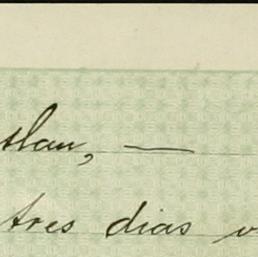 slau, —
tres dias